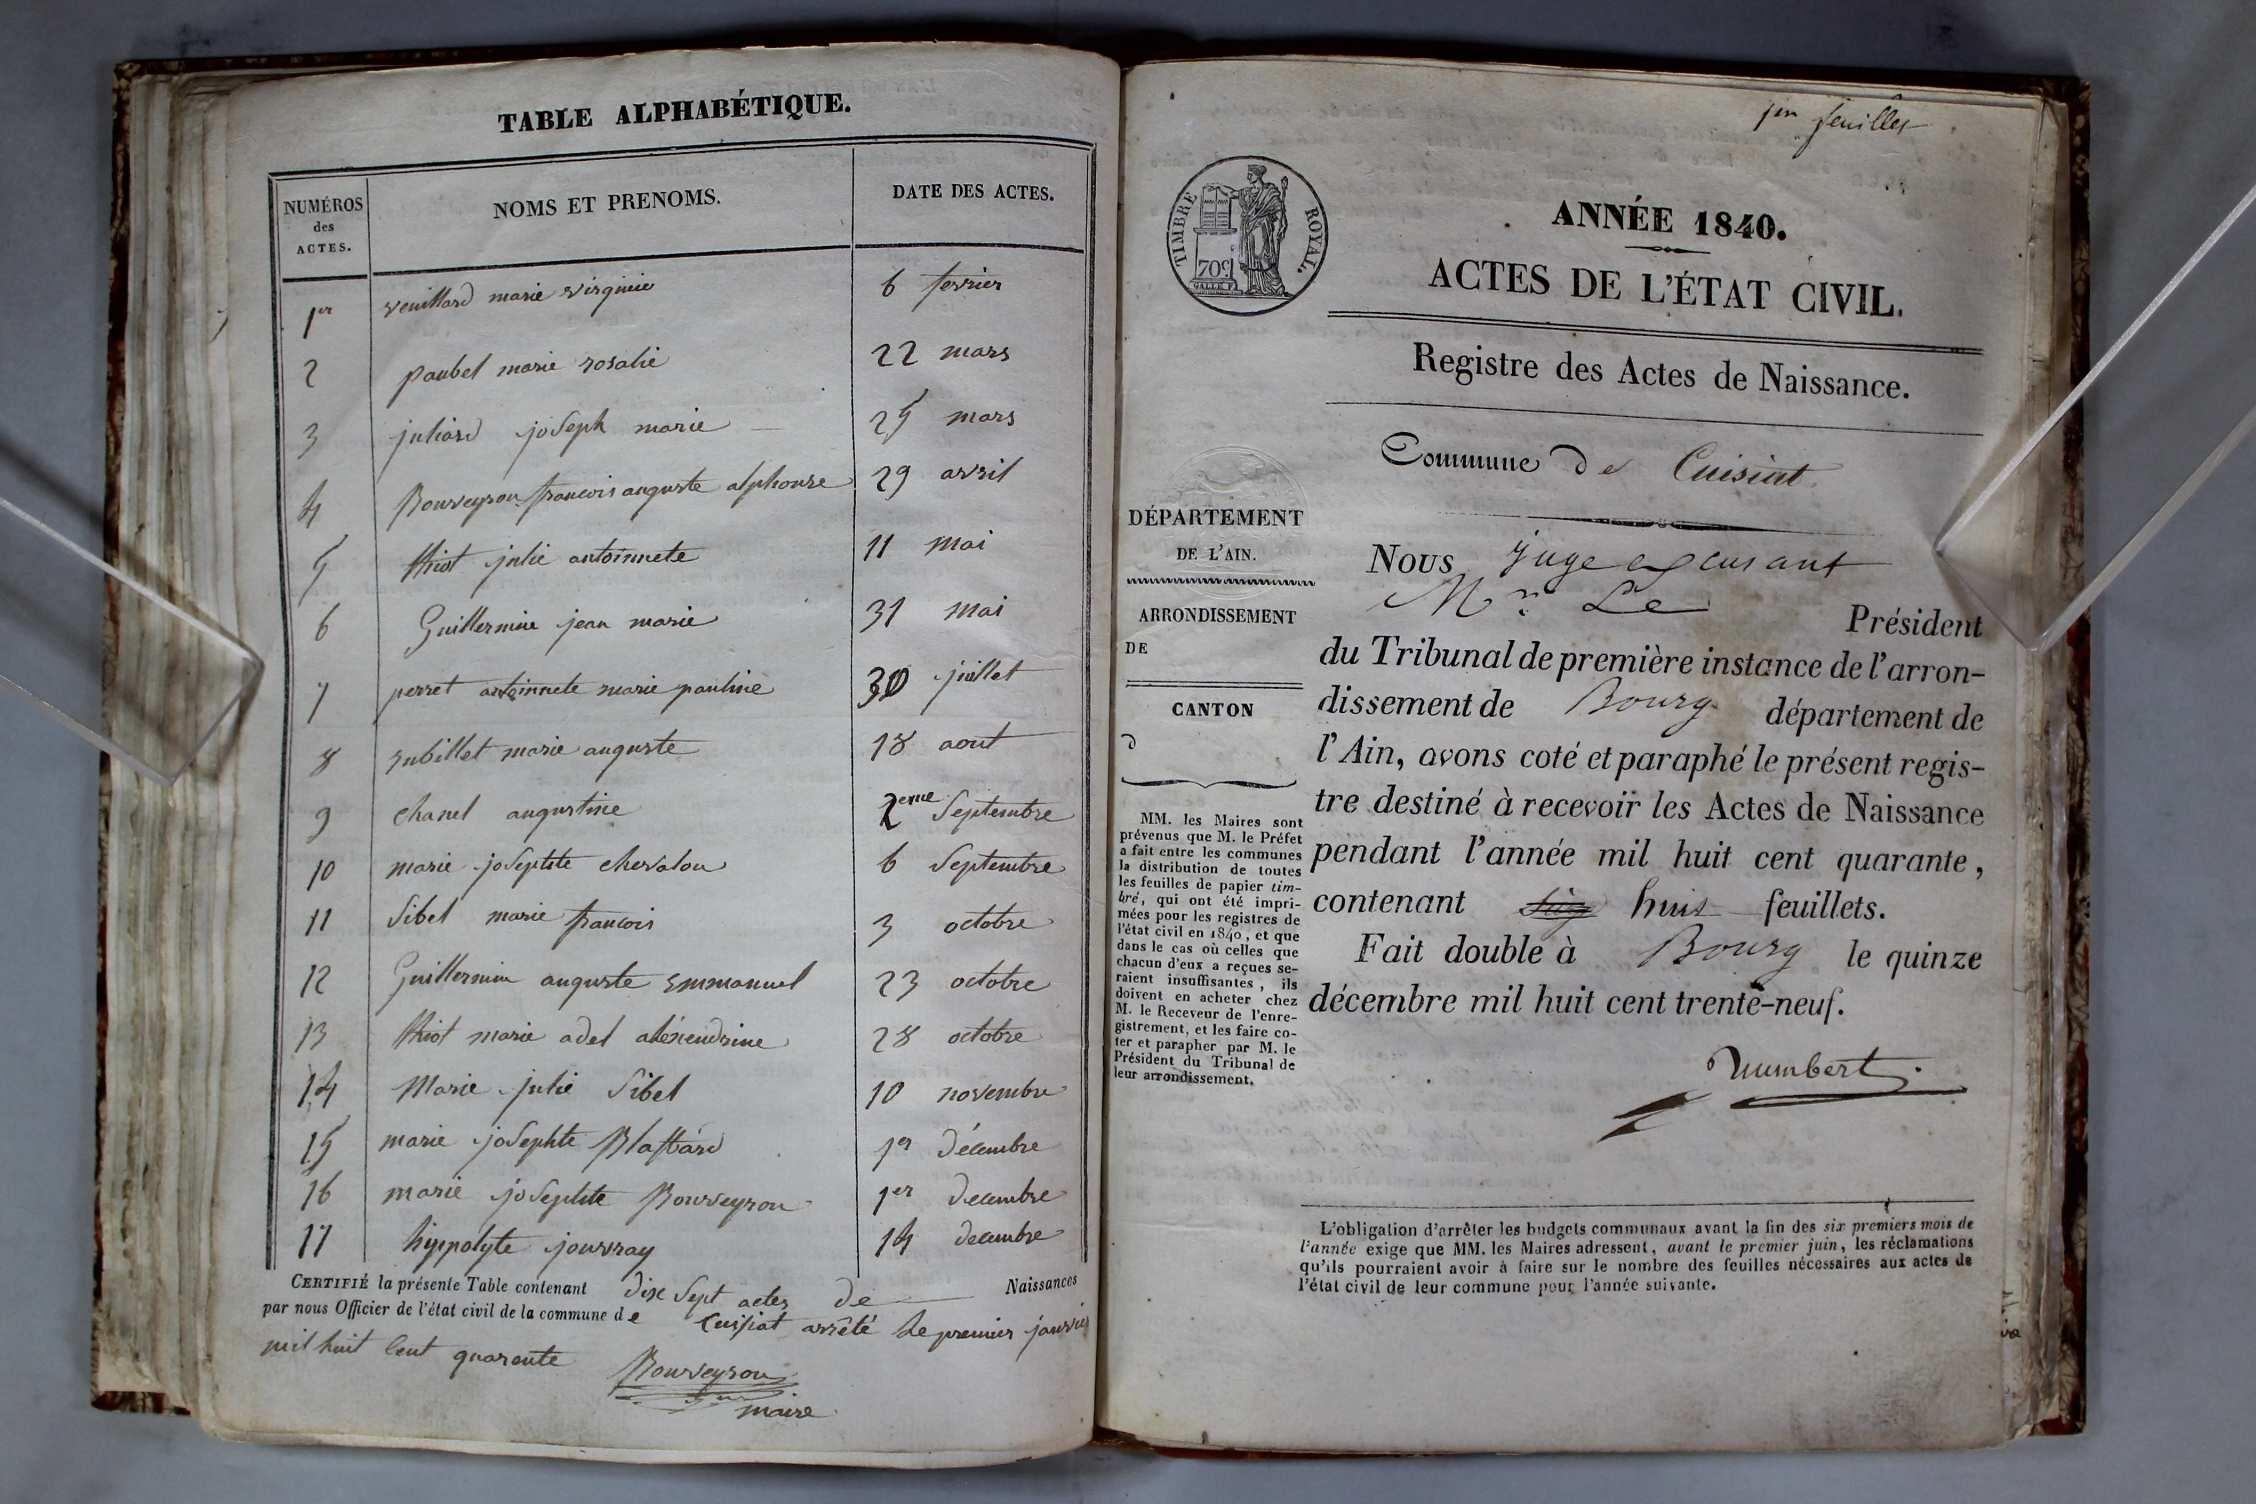 TABLE ALPHABÉTIQUE.
NUMÉROS des ACTES.
NOMS ET PRENOMS.
DATE DES ACTES.
1er veuillard marie virginie 6 fevrier
2 paubel marie rosalie 22 mars
3 juliard joseph marie 25 mars
4 Bourveyron francois auguste alphonse 29 avril
5 thiot julie antoinnete 11 mai
6 Guillermin jean marie 31 mai
7 perret antoinnete marie pauline 30 juillet
8 subillet marie auguste 18 aout
9 chanel augustine 2eme Septembre
10 marie josephte chevalon 6 Septembre
11 Sibel marie francois 3 octobre
12 Guillermin auguste Emmanuel 23 octobre
13 thiot marie adel aléxendrine 28 octobre
14 Marie julie Sibel 10 novembre
15 marie josephte Blattard 1er Décembre
16 marie josephte Bourveyron 1er decembre
17 hyppolyte jouvray 14 decembre
CERTIFIÉ la présente Table contenant dix Sept actes de Naissances
par nous Officier de l'état civil de la commune de Cuisiat arrêté le premier janvier
mil huit Cent quarente
Bourveyron
maire
feuilles
TIMBRE ROYAL.
70c
ANNÉE 1840.
ACTES DE L'ÉTAT CIVIL.
Registre des Actes de Naissance.
Commune de Cuisiat
DÉPARTEMENT
DE L'AIN.
ARRONDISSEMENT
DE
CANTON
d
MM. les Maires sont
prévenus que M. le Préfet
a fait entre les communes
la distribution de toutes
les feuilles de papier tim-
bré, qui ont été impri-
mées pour les registres de
l'état civil en 1840, et que
dans le cas où celles que
chacun d'eux a reçues se-
raient insuffisantes, ils
doivent en acheter chez
M. le Receveur de l'enre-
gistrement, et les faire co-
ter et parapher par M. le
Président du Tribunal de
leur arrondissement.
Nous Juge excusant
Mr Le Président
du Tribunal de première instance de l'arron-
dissement de Bourg département de
l'Ain, avons coté et paraphé le présent regis-
tre destiné à recevoir les Actes de Naissance
pendant l'année mil huit cent quarante,
contenant huit feuillets.
Fait double à Bourg le quinze
décembre mil huit cent trente-neuf.
humbert
L'obligation d'arrêter les budgets communaux avant la fin des six premiers mois de
l'année exige que MM. les Maires adressent, avant le premier juin, les réclamations
qu'ils pourraient avoir à faire sur le nombre des feuilles nécessaires aux actes de
l'état civil de leur commune pour l'année suivante.